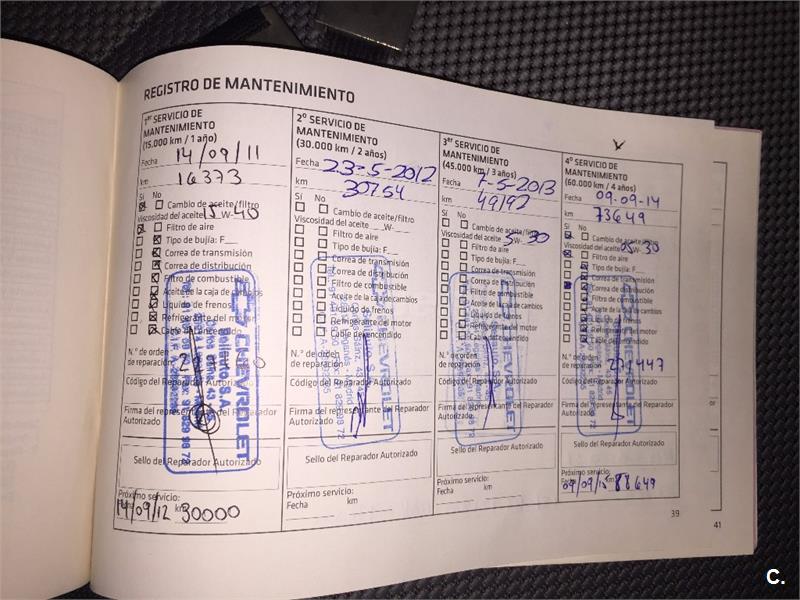 REGISTRO DE MANTENIMIENTO
1er SERVICIO DE
MANTENIMIENTO
(15.000 km / 1 año)
Fecha 14/09/11
km 16373
Sí No
Cambio de aceite/filtro
Viscosidad del aceite 15 W-40
Filtro de aire
Tipo de bujía: F
Correa de transmisión
Correa de distribución
Filtro de combustible
Aceite de la caja de cambios
Líquido de frenos
Refrigerante del motor
Cable de encendido
N.º de orden
de reparación:
Código del Reparador Autorizado
Firma del representante del Reparador
Autorizado
CHEVROLET
Sello del Reparador Autorizado
Próximo servicio:
Fecha km
14/09/12 30000
2º SERVICIO DE
MANTENIMIENTO
(30.000 km / 2 años)
Fecha 23-5-2012
km 30764
Sí No
Cambio de aceite/filtro
Viscosidad del aceite W-
Filtro de aire
Tipo de bujía: F
Correa de transmisión
Correa de distribución
Filtro de combustible
Aceite de la caja de cambios
Líquido de frenos
Refrigerante del motor
Cable de encendido
N.º de orden
de reparación:
Código del Reparador Autorizado
Firma del representante del Reparador
Autorizado
CHEVROLET
Sello del Reparador Autorizado
Próximo servicio:
Fecha km
3er SERVICIO DE
MANTENIMIENTO
(45.000 km / 3 años)
Fecha 7-5-2013
km 49192
Sí No
Cambio de aceite/filtro
Viscosidad del aceite 5 W-30
Filtro de aire
Tipo de bujía: F
Correa de transmisión
Correa de distribución
Filtro de combustible
Aceite de la caja de cambios
Líquido de frenos
Refrigerante del motor
Cable de encendido
N.º de orden
de reparación:
Código del Reparador Autorizado
Firma del representante del Reparador
Autorizado
CHEVROLET
Sello del Reparador Autorizado
Próximo servicio:
Fecha km
4º SERVICIO DE
MANTENIMIENTO
(60.000 km / 4 años)
Fecha 09-09-14
km 73649
Sí No
Cambio de aceite/filtro
Viscosidad del aceite 05-30
Filtro de aire
Tipo de bujía: F
Correa de transmisión
Correa de distribución
Filtro de combustible
Aceite de la caja de cambios
Líquido de frenos
Refrigerante del motor
Cable de encendido
N.º de orden
de reparación:
Código del Reparador Autorizado
Firma del representante del Reparador
Autorizado
CHEVROLET
Sello del Reparador Autorizado
Próximo servicio:
Fecha km
09/09/15 88649
39
41
C.